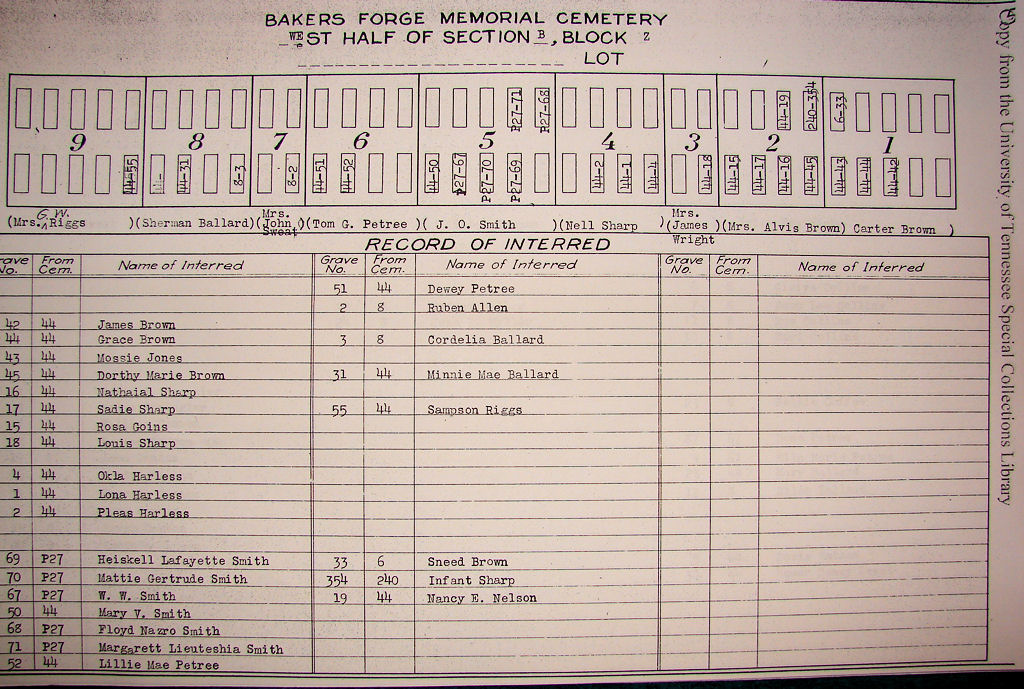 BAKERS FORGE MEMORIAL CEMETERY
WEST HALF OF SECTION B, BLOCK 2
LOT
P27-71 P27-68 44-19 240-354 6-33
9 8 7 6 5 4 3 2 1
44-55 44- 44-31 8-3 8-2 44-51 44-52 44-50 P27-67 P27-70 P27-69 44-2 44-1 44-4 44-18 44-15 44-17 44-16 44-45 44-43 44-44 44-42
(Mrs. G. W. Riggs )(Sherman Ballard)(Mrs. John Sweat)(Tom G. Petree )( J. O. Smith )(Nell Sharp )(Mrs. James Wright )(Mrs. Alvis Brown) Carter Brown )
RECORD OF INTERRED
rave No. From Cem. Name of Interred Grave No. From Cem. Name of Interred Grave No. From Cem. Name of Interred
51 44 Dewey Petree
2 8 Ruben Allen
42 44 James Brown
44 44 Grace Brown 3 8 Cordelia Ballard
43 44 Mossie Jones
45 44 Dorthy Marie Brown 31 44 Minnie Mae Ballard
16 44 Nathaial Sharp
17 44 Sadie Sharp 55 44 Sampson Riggs
15 44 Rosa Goins
18 44 Louis Sharp
4 44 Okla Harless
1 44 Lona Harless
2 44 Pleas Harless
69 P27 Heiskell Lafayette Smith 33 6 Sneed Brown
70 P27 Mattie Gertrude Smith 354 240 Infant Sharp
67 P27 W. W. Smith 19 44 Nancy E. Nelson
50 44 Mary V. Smith
68 P27 Floyd Nazro Smith
71 P27 Margarett Lieuteshia Smith
52 44 Lillie Mae Petree
Copy from the University of Tennessee Special Collections Library